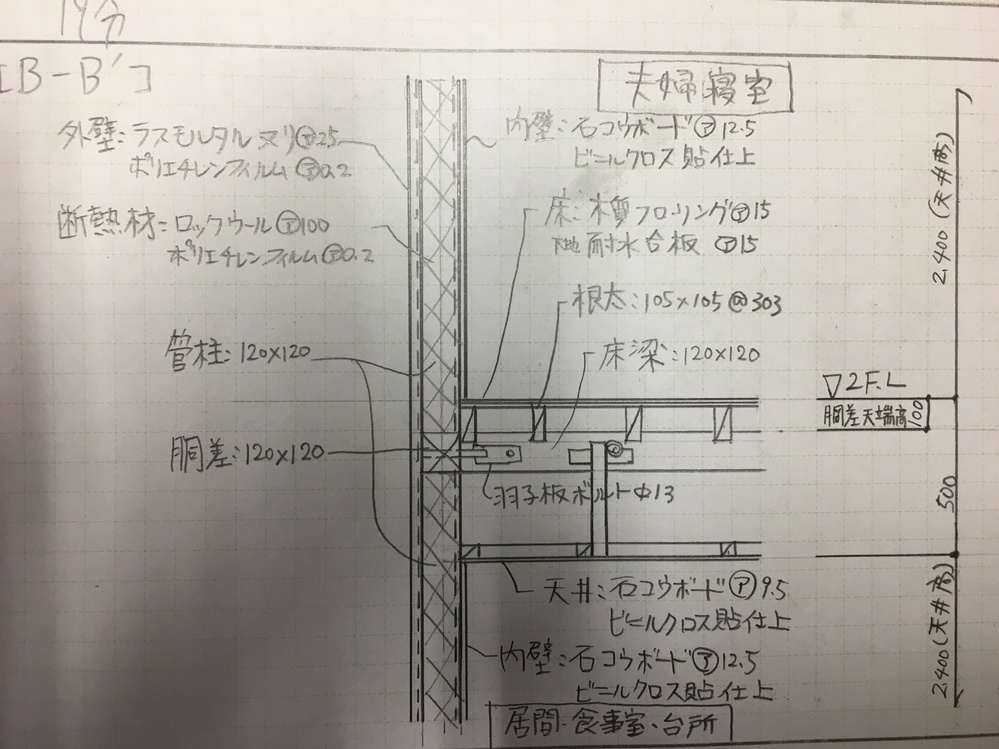 19分
[B-B']
夫婦寝室
外壁:ラスモルタルヌリ㋐25
ポリエチレンフィルム㋐0.2
内壁:石コウボード㋐12.5
ビニールクロス貼仕上
断熱材:ロックウール㋐100
ポリエチレンフィルム㋐0.2
床:木質フローリング㋐15
下地耐水合板 ㋐15
根太:105×105@303
管柱:120×120
床梁:120×120
胴差:120×120
羽子板ボルトΦ13
天井:石コウボード㋐9.5
ビニールクロス貼仕上
内壁:石コウボード㋐12.5
ビニールクロス貼仕上
居間・食事室・台所
2,400(天井高)
▽2F.L
胴差天端高
100
500
2,400(天井高)